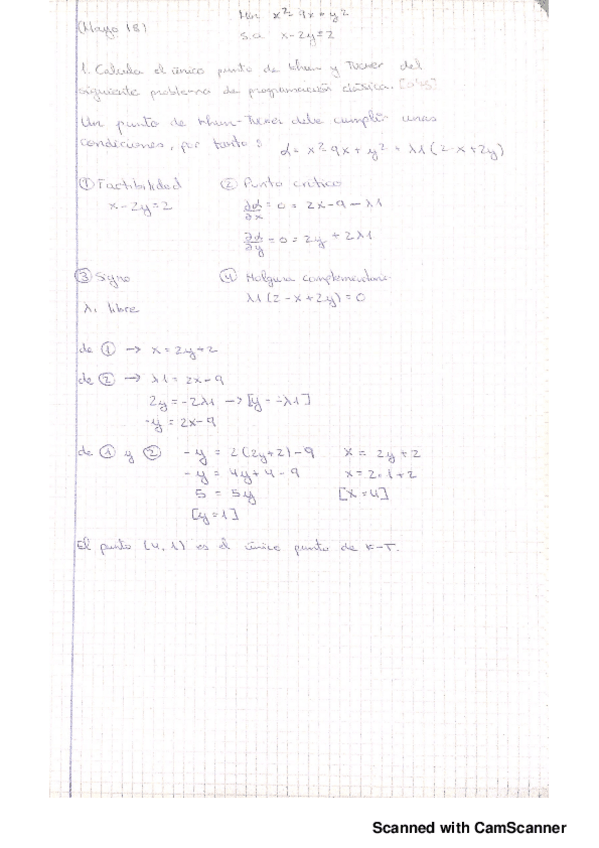 (Mayo 18)
Min x²-9x+y²
s.a x-2y=2
1. Calcula el único punto de Khun y Tucker del
siguiente problema de programación clásica. [0'45]
Un punto de Khun-Tucker debe cumplir unas
condiciones, por tanto: L = x²-9x+y²+λ1(2-x+2y)
① Factibilidad
x-2y=2
② Punto crítico
∂L/∂x = 0 = 2x-9-λ1
∂L/∂y = 0 = 2y+2λ1
③ Signo
λ1 libre
④ Holgura complementaria
λ1(2-x+2y)=0
de ① → x=2y+2
de ② → λ1=2x-9
2y=-2λ1 → [y=-λ1]
-y=2x-9
de ① y ② -y = 2(2y+2)-9 x = 2y+2
-y = 4y+4-9 x = 2·1+2
5 = 5y [x=4]
[y=1]
El punto (4,1) es el único punto de K-T.
Scanned with CamScanner